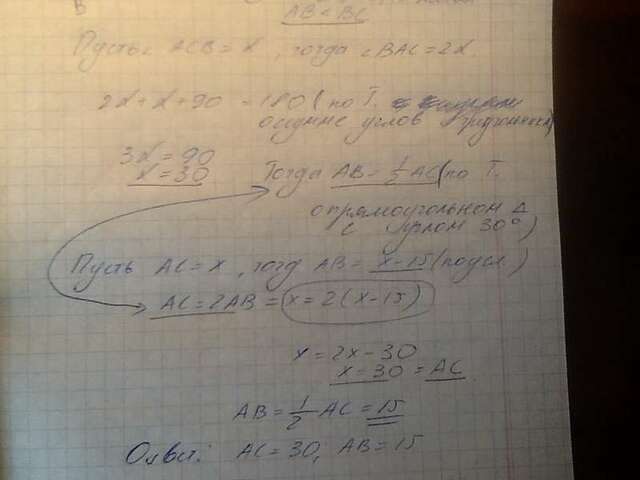 В
AB < BC
Пусть ∠ACB = x, тогда ∠BAC = 2x
2x + x + 90 = 180 (по Т.
о сумме углов треугольника)
3x = 90
x = 30
Тогда AB = 1/2 AC (по Т.
о прямоугольном Δ
с углом 30°)
Пусть AC = x, тогд AB = x-15 (по усл.)
AC = 2AB = x = 2(x-15)
x = 2x - 30
x = 30 = AC
AB = 1/2 AC = 15
Ответ: AC = 30, AB = 15